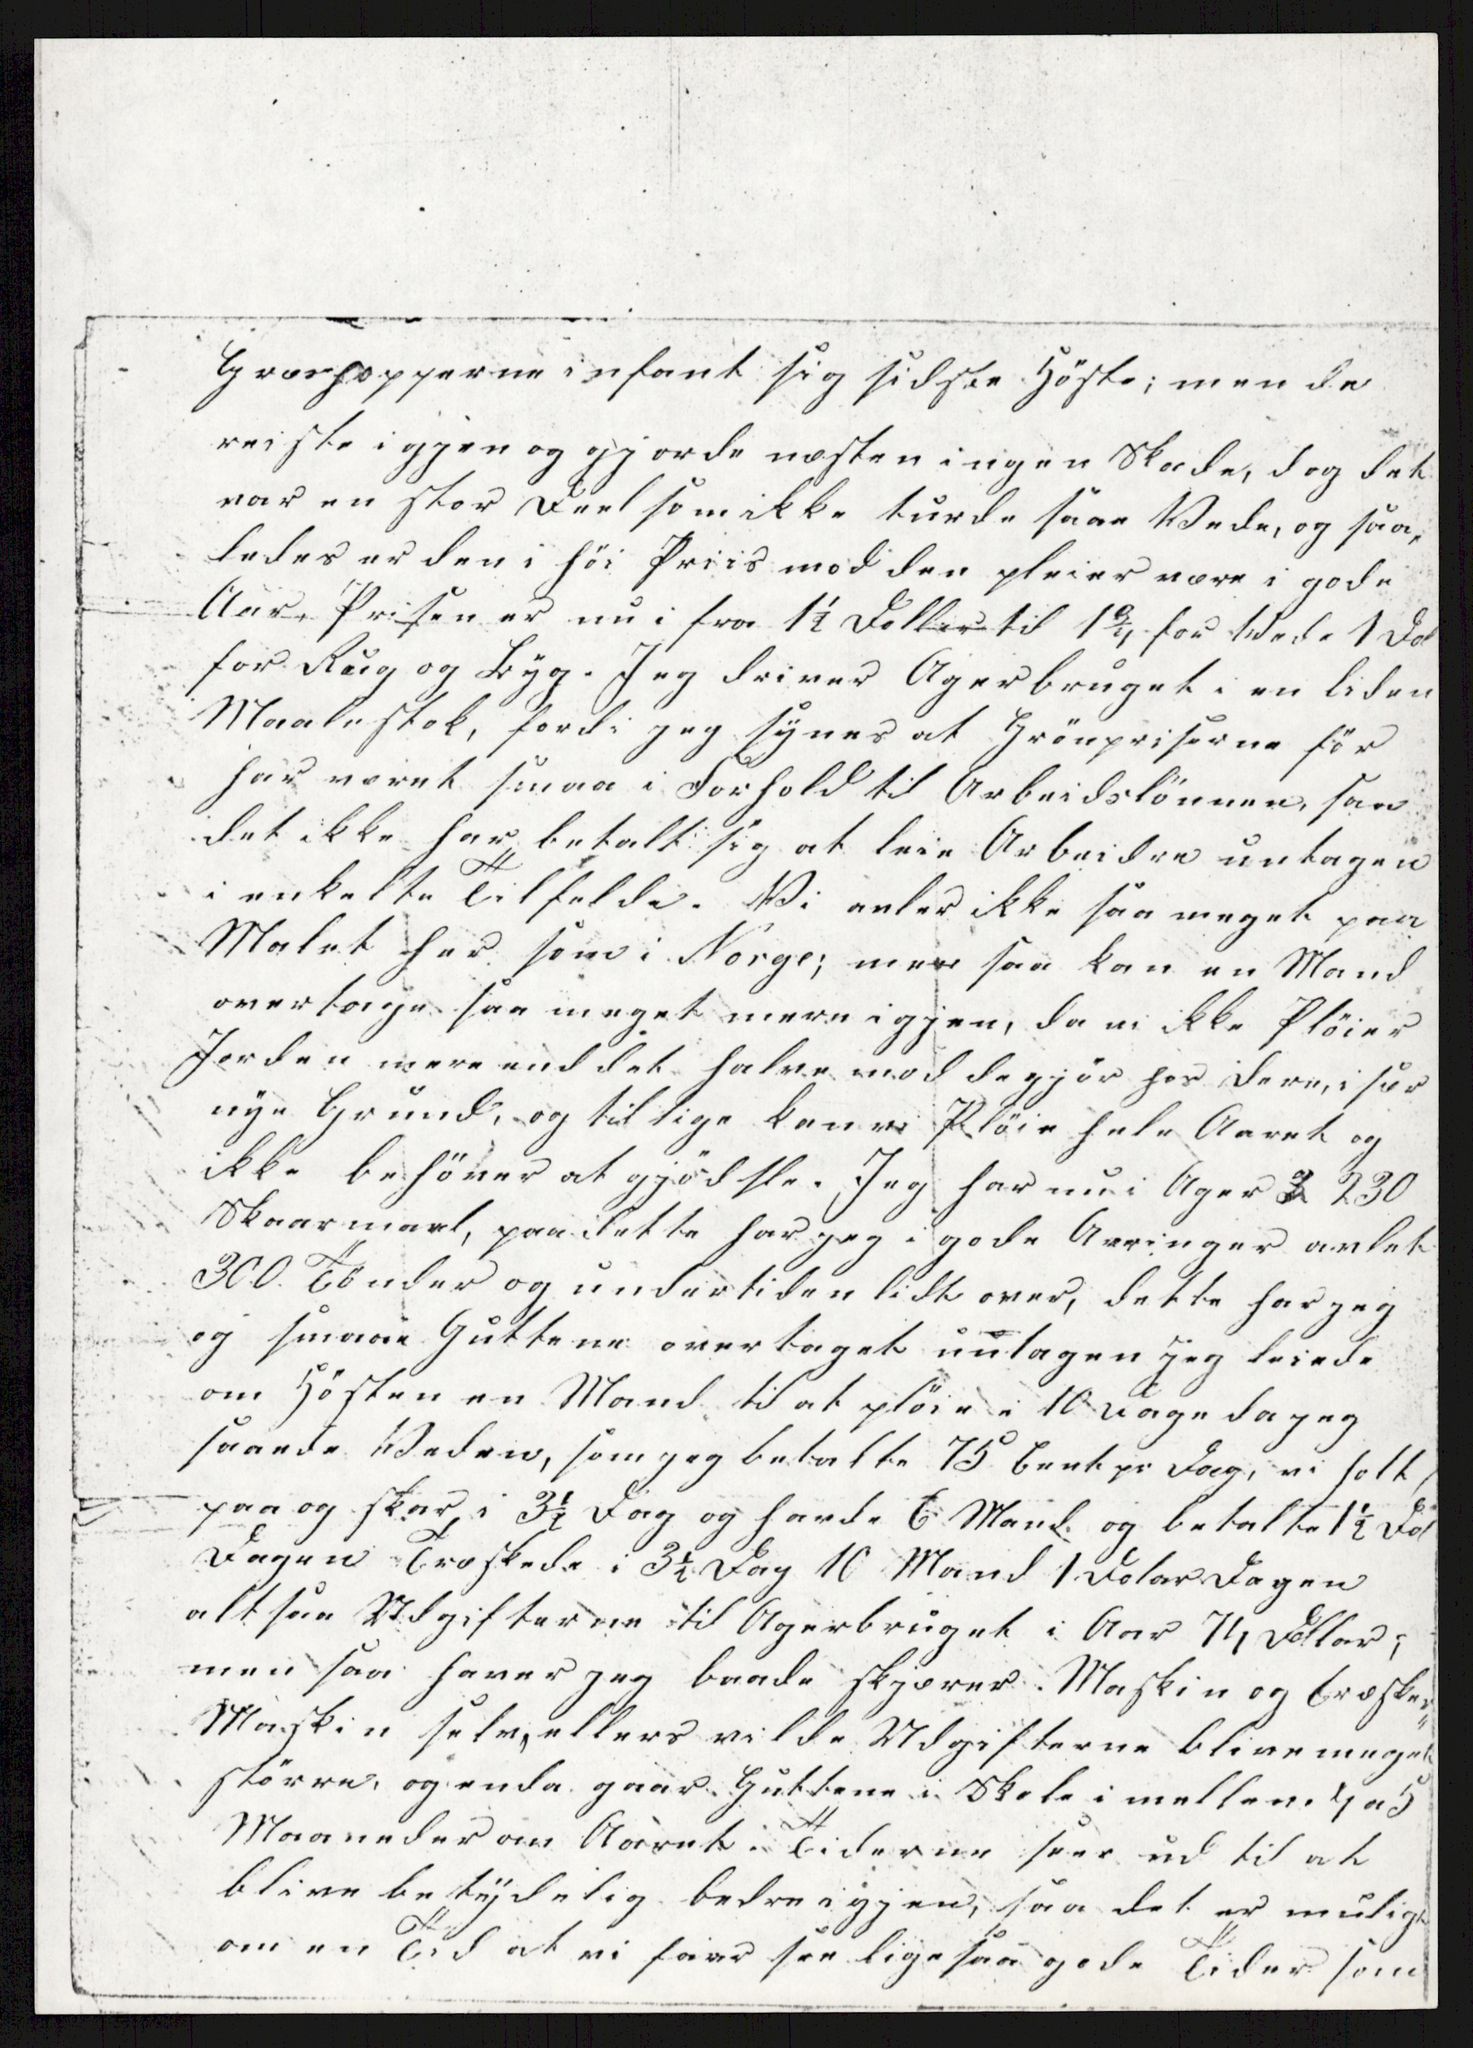 Græshopperne infant sig sidste Höste; men de
reiste igjen og gjorde næsten ingen Skade, dog det
var en stor Deel som ikke turde saae Vede, og saa„
ledes er den i höi Priis mod den pleier være i gode
Aar. Prisen er nu i fra 1½ Dollar til 1¾ for Vede 1 Dol
for Rug og Byg. Jeg driver Agerbruget i en liden
Maalestok, fordi jeg synes at Grönpriserne för
har været smaa i Forhold til Arbeidslönnen, saa
det ikke har betalt sig at leie Arbeidre untagen
i enkelte Tilfelde. Vi avler ikke saa meget paa
Malet her som i Norge; men saa kan en Mand
overtage saa meget mere igjen, da vi ikke Plöier
Jorden mere end det halve mod de gjör hos dere, i sær
nye Grund, og tillige kan vi Plöie hele Aaret og
ikke behöver at gjödsle. Jeg har nu i Ager 230
Skaarmaal, paa dette har jeg i gode Aaringer avlet
300 Tönder og undertiden lidt over, dette har jeg
og smaae Guttene overtaget untagen jeg leiede
om Hösten en Mand til at plöie i 10 Dage da jeg
saaede Veden, som jeg betalte 75 Cent pr Dag, vi holt
paa og skar i 3½ Dag og havde 6 Mand og betalte 1½ Dol
Dagen Træskede i 3½ Dag 10 Mand 1 Dolar Dagen
altsaa Udgifterne til Agerbruget i Aar 74 Dollar;
men saa haver jeg baade skjærer Maskin og træske„
Maskin selv, ellers vilde Udgifterne blive meget
större, og enda gaar Guttene i Skole i mellem 4 a 5
Maaneder om Aaret. Tiderne seer ud til at
blive betydelig bedre igjen, saa det er muligt
om en Tid at vi faar see lige saa gode Tider som